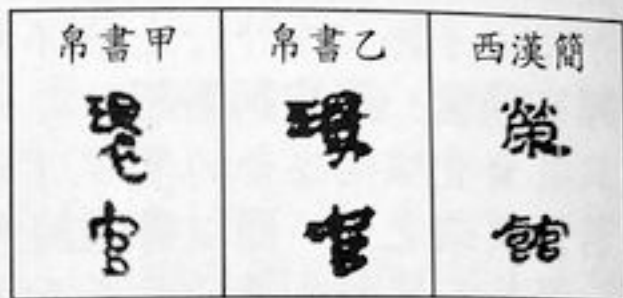 帛書甲 帛書乙 西漢簡
環 環 榮
官 官 館